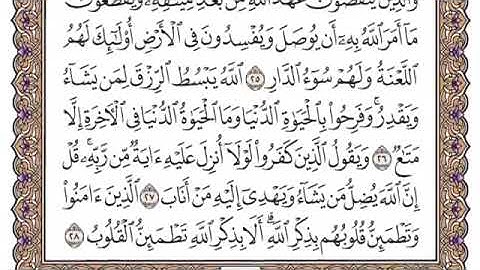 وَٱلَّذِينَ يَنقُضُونَ عَهۡدَ ٱللَّهِ مِنۢ بَعۡدِ مِيثَٰقِهِۦ وَيَقۡطَعُونَ
مَآ أَمَرَ ٱللَّهُ بِهِۦٓ أَن يُوصَلَ وَيُفۡسِدُونَ فِي ٱلۡأَرۡضِ أُوْلَٰٓئِكَ لَهُمُ
ٱللَّعۡنَةُ وَلَهُمۡ سُوٓءُ ٱلدَّارِ ٢٥ ٱللَّهُ يَبۡسُطُ ٱلرِّزۡقَ لِمَن يَشَآءُ
وَيَقۡدِرُۚ وَفَرِحُواْ بِٱلۡحَيَوٰةِ ٱلدُّنۡيَا وَمَا ٱلۡحَيَوٰةُ ٱلدُّنۡيَا فِي ٱلۡأٓخِرَةِ إِلَّا
مَتَٰعٞ ٢٦ وَيَقُولُ ٱلَّذِينَ كَفَرُواْ لَوۡلَآ أُنزِلَ عَلَيۡهِ ءَايَةٞ مِّن رَّبِّهِۦۚ قُلۡ
إِنَّ ٱللَّهَ يُضِلُّ مَن يَشَآءُ وَيَهۡدِيٓ إِلَيۡهِ مَنۡ أَنَابَ ٢٧ ٱلَّذِينَ ءَامَنُواْ
وَتَطۡمَئِنُّ قُلُوبُهُم بِذِكۡرِ ٱللَّهِۗ أَلَا بِذِكۡرِ ٱللَّهِ تَطۡمَئِنُّ ٱلۡقُلُوبُ ٢٨